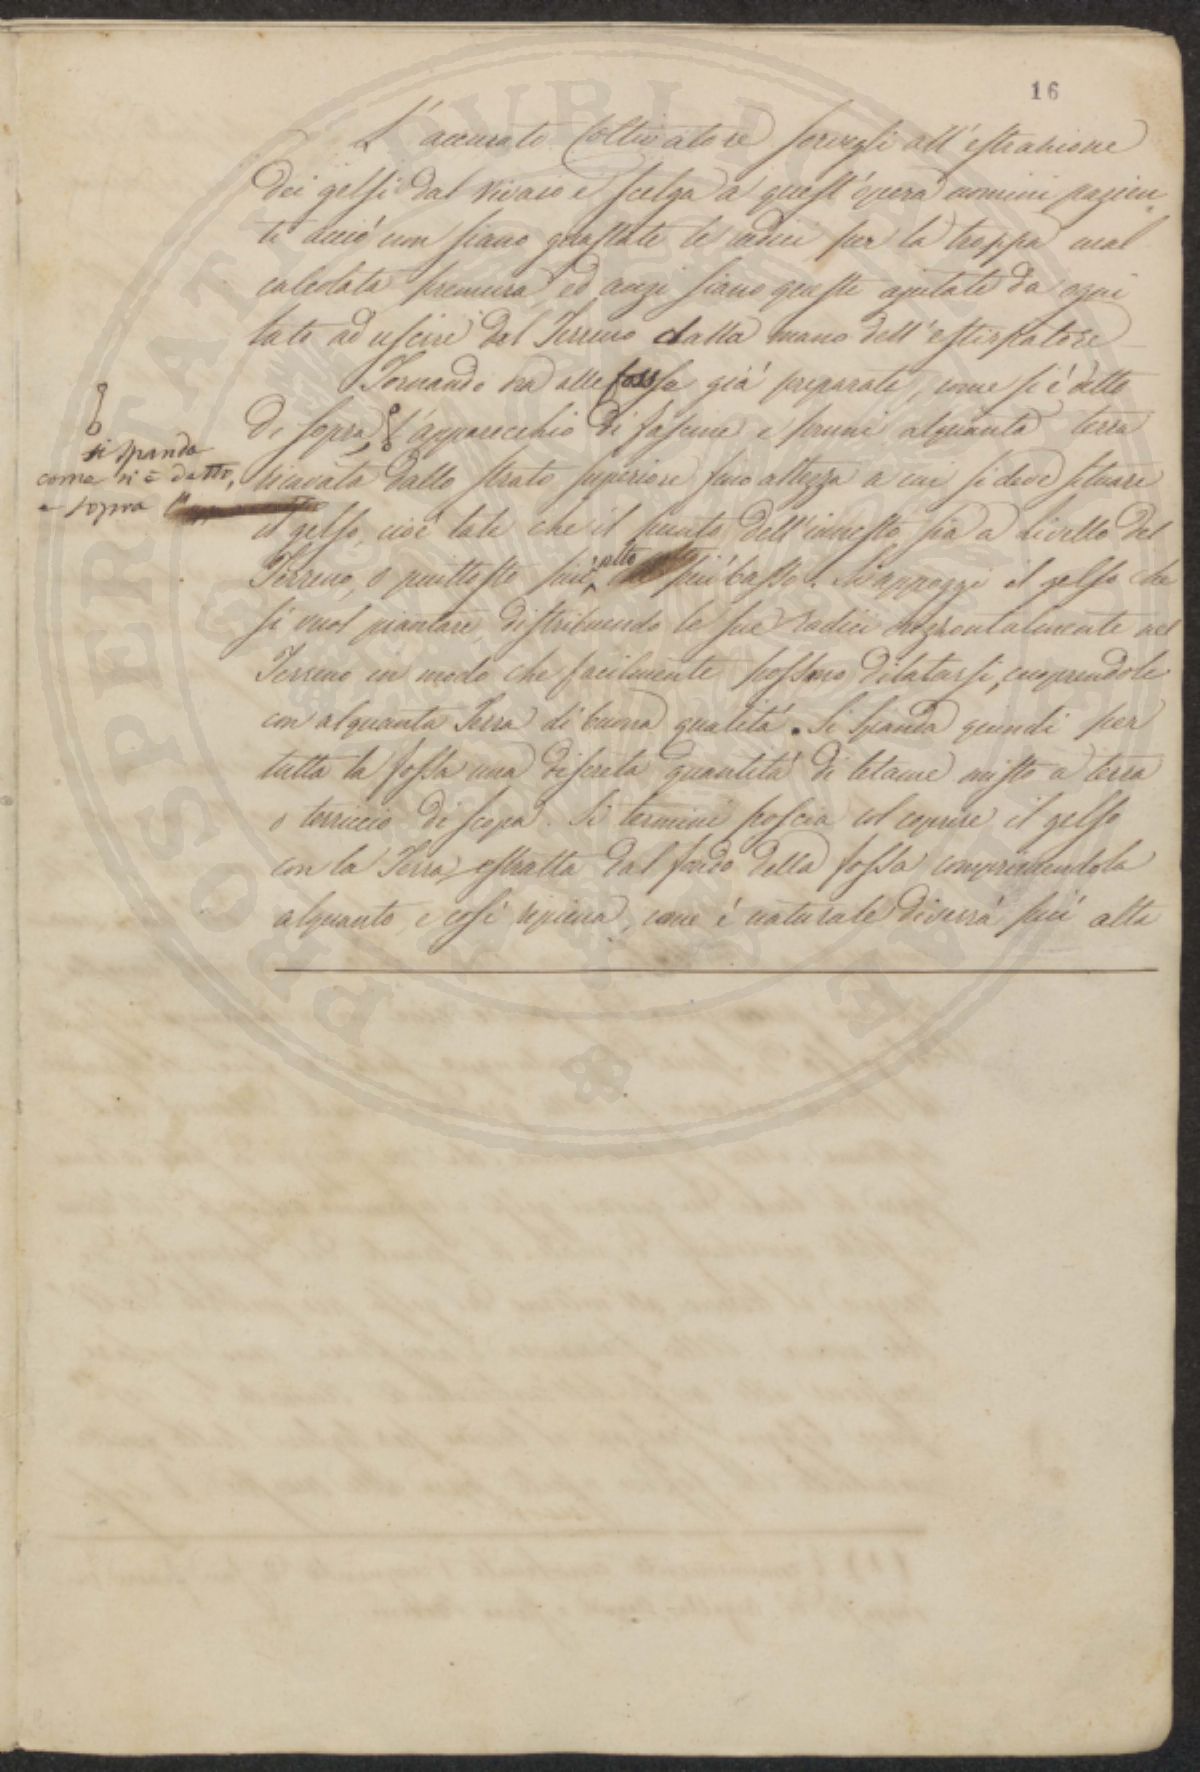 16
L'accurato Coltivatore sorvegli all'estrazione
dei gelsi dal vivaio e scelga a quest'opera uomini pazien
ti acciò non siano guastate le radici per la troppa mal
calcolata premura, ed anzi siano queste ajutate da ogni
lato ad uscire dal Terreno dalla mano dell'estirpatore
Tornando ora alle fosse già preparate, come si è detto
di sopra, l'apparecchio di fascine e pruni alquanta terra
si spanda
come si è detto,
e sopra
ricavata dallo strato superiore fino altezza a cui si deve situare
il gelso, cioè tale che il punto dell'innesto sia a livello del
Terreno, o piuttosto più basso. Si appoggi il gelso che
si vuol piantare, distribuendo le sue radici orizzontalmente nel
Terreno in modo che facilmente possano dilatarsi, cuoprendole
con alquanta Terra di buona qualità. Si spanda quindi per
tutta la fossa una discreta quantità di letame misto a terra
o terriccio di scopa. Si termini poscia col coprire il gelso
con la Terra estratta dal fondo della fossa comprimendola
alquanto e così ripiena, come è naturale diverrà più alta
PROSPERITATI PUBLICAE AUGENDAE